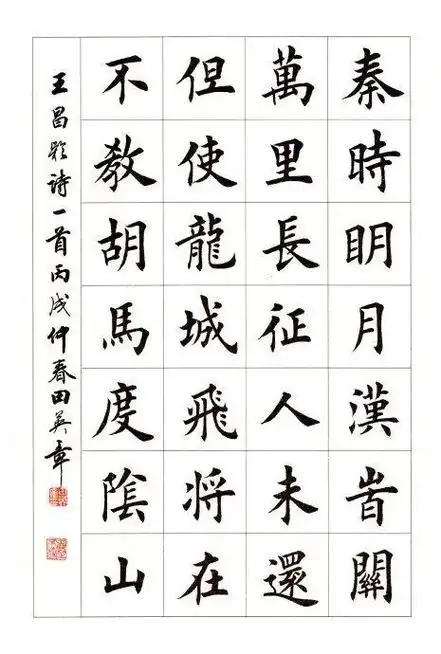 秦時眀月漢旹關
萬里長征人未還
但使龍城飛將在
不教胡馬度陰山
王昌齡詩一首丙戌仲春田英章